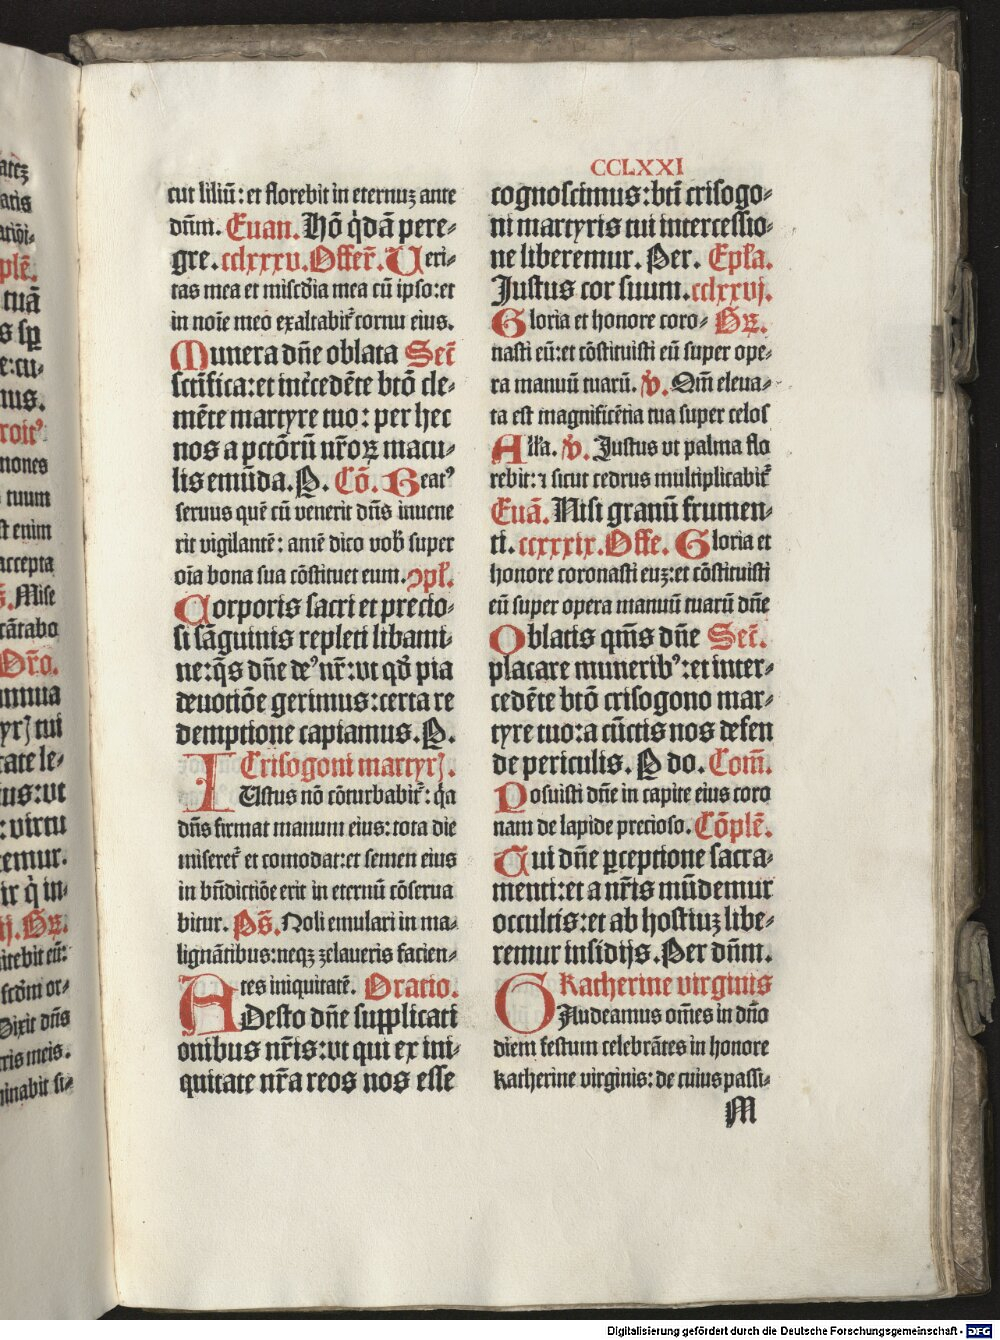 CCLXXI
cut liliū: et florebit in eternuꝫ ante
dn̄m. Euan. Hō q̇dā pere⸗
gre. cclxxxv. Offer̄. Ueri⸗
tas mea et miscd̄ia mea cū ipso: et
in noīe meo exaltabit᷑ cornu eius.
Munera dn̄e oblata Secr̄
sctīfica: et int̄cedēte btō cle⸗
mēte martyre tuo: per hec
nos a pctōrū nr̄oꝝ macu⸗
lis emūda. P. Cō. Beatꝰ
seruus quē cū venerit dn̄s inuene
rit vigilantē: amē dico vob̄ super
oīa bona sua cōstituet eum. ꝯpl̄.
Corporis sacri et precio⸗
si sāguinis repleti libami⸗
ne: q̄s dn̄e deꝰ nr̄: vt qd̄ pia
deuotiōe gerimus: certa re
demptione capiamus. P.
Crisogoni martyrꝭ.
IUstus nō cōturbabit᷑: q̇a
dn̄s firmat manum eius: tota die
miseret᷑ et comodat: et semen eius
in bn̄dictiōe erit in eternū cōserua
bitur. Ps̄. Noli emulari in ma⸗
lignātibus: neqꝫ zelaueris facien⸗
tes iniquitatē. Oratio.
ADesto dn̄e supplicati
onibus nr̄is: vt qui ex ini⸗
quitate nr̄a reos nos esse
cognoscimus: bti̅ crisogo⸗
ni martyris tui intercessio⸗
ne liberemur. Per. Epl̄a.
Justus cor suum. cclxxvj.
Gloria et honore coro⸗ Gꝝ.
nasti eū: et cōstituisti eū super ope⸗
ra manuū tuarū. v̄. Qm̄ eleua⸗
ta est magnificētia tua super celos
All̄a. v̄. Justus vt palma flo
rebit: ⁊ sicut cedrus multiplicabit᷑
Euā. Nisi granū frumen⸗
ti. ccxxxix. Offe. Gloria et
honore coronasti euꝫ: et cōstituisti
eū super opera manuū tuarū dn̄e
Oblatis qm̄s dn̄e Secr̄.
placare muneribꝰ: et inter⸗
cedēte btō crisogono mar⸗
tyre tuo: a cūctis nos defen
de periculis. P do. Com̄.
Posuisti dn̄e in capite eius coro
nam de lapide precioso. Cōplē.
Tui dn̄e ꝑceptione sacra⸗
menti: et a nr̄is mūdemur
occultis: et ab hostiuꝫ libe⸗
remur insidijs. Per dn̄m.
Katherine virginis
GAudeamus om̄es in dn̄o
diem festum celebrātes in honore
katherine virginis: de cuius passi⸗
M
Digitalisierung gefördert durch die Deutsche Forschungsgemeinschaft - DFG